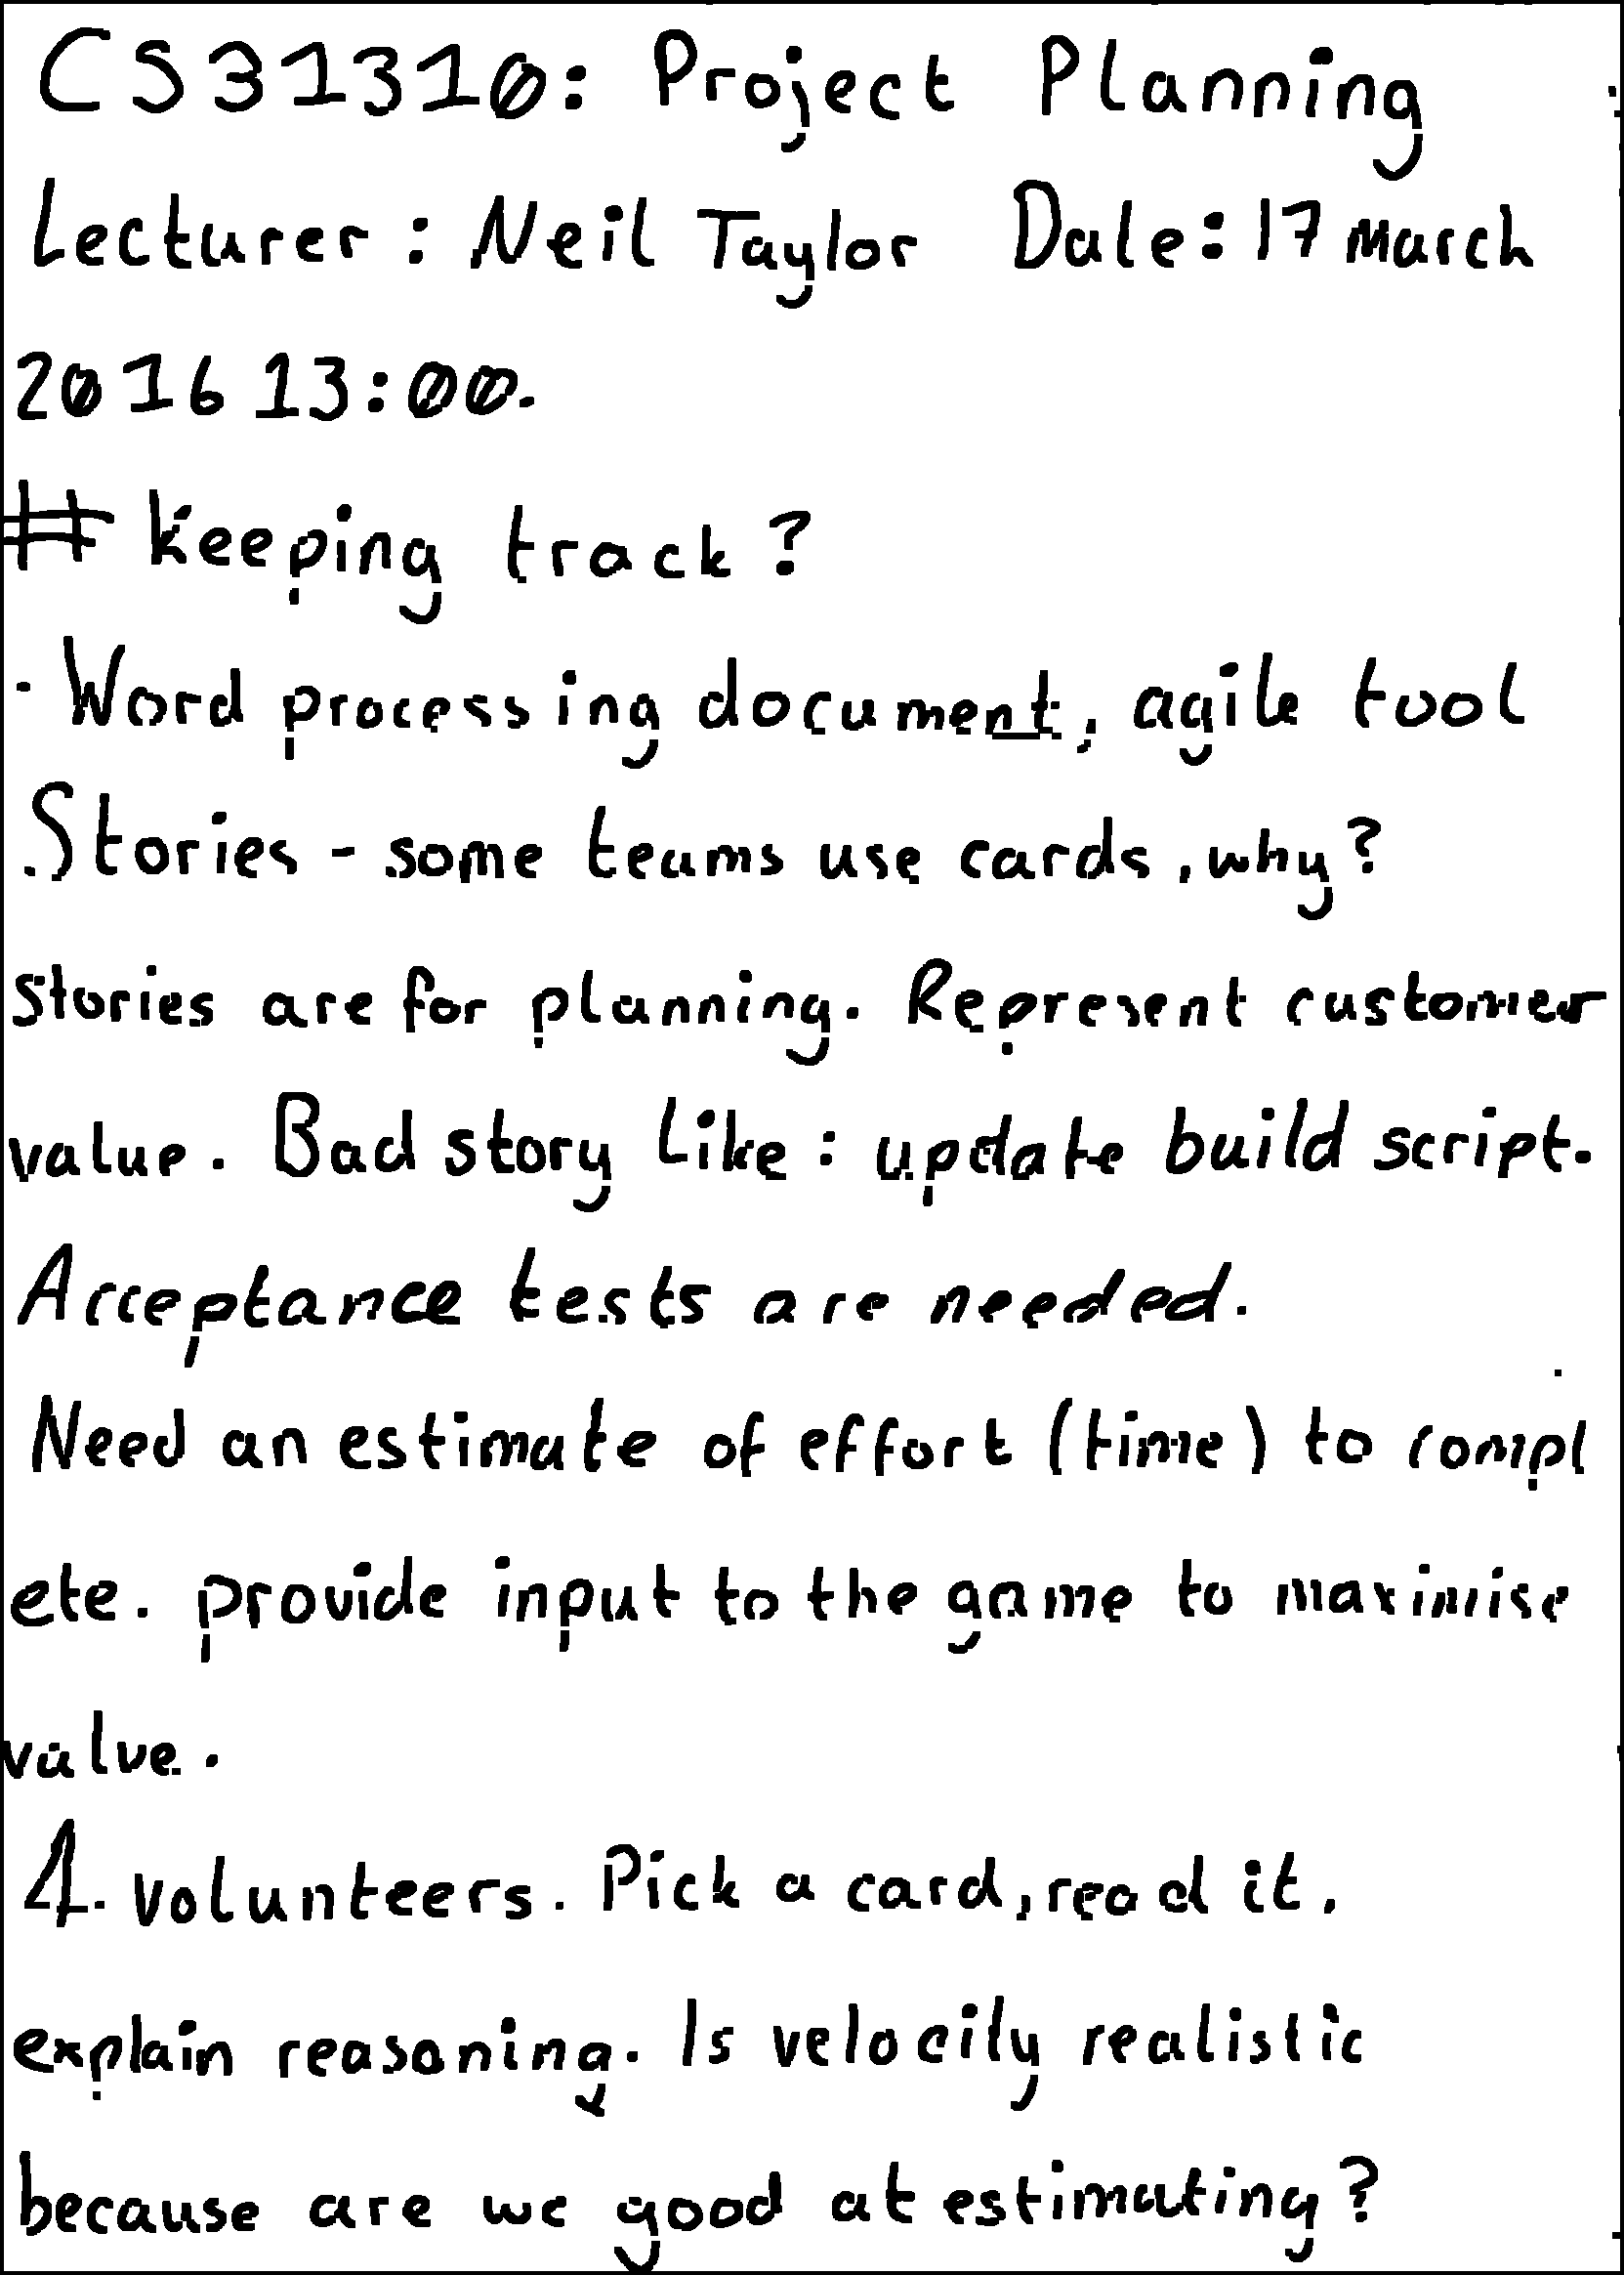 CS31310: Project Planning
Lecturer: Neil Taylor Date: 17 March
2016 13:00.
# Keeping track?
- Word processing document, agile tool
.Stories - some teams use cards, why?
stories are for planning. Represent customer
value. Bad story like: update build script.
Acceptance tests are needed.
Need an estimate of effort (time) to compl
ete. provide input to the game to maximise
value.
4. volunteers. Pick a card, read it.
explain reasoning. Is velocity realistic
because are we good at estimating?